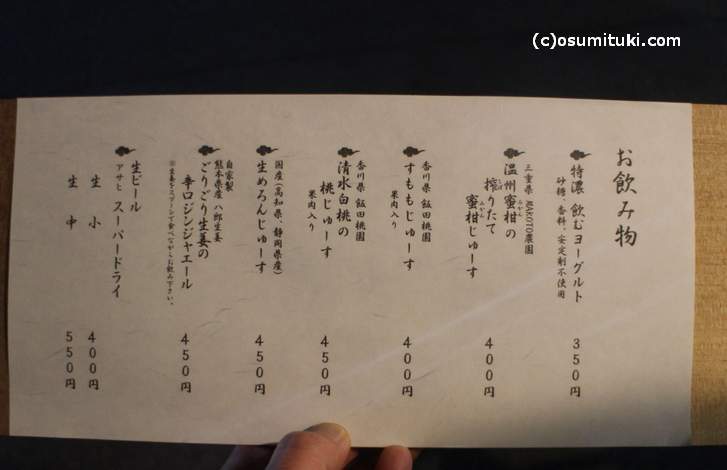 (c)osumituki.com
お飲み物
特濃 飲むヨーグルト
砂糖、香料、安定剤不使用
350円
三重県 MAKOTO農園
温州蜜柑の
搾りたて
蜜柑じゅーす
400円
香川県 飯田桃園
すももじゅーす
果肉入り
400円
香川県 飯田桃園
清水白桃の
桃じゅーす
果肉入り
450円
国産(高知県、静岡県産)
生めろんじゅーす
450円
自家製
熊本県産 八郎生姜
ごりごり生姜の
辛口ジンジャエール
※生姜をスプーンで食べながらお飲み下さい。
450円
生ビール
アサヒ スーパードライ
生 小
400円
生 中
550円